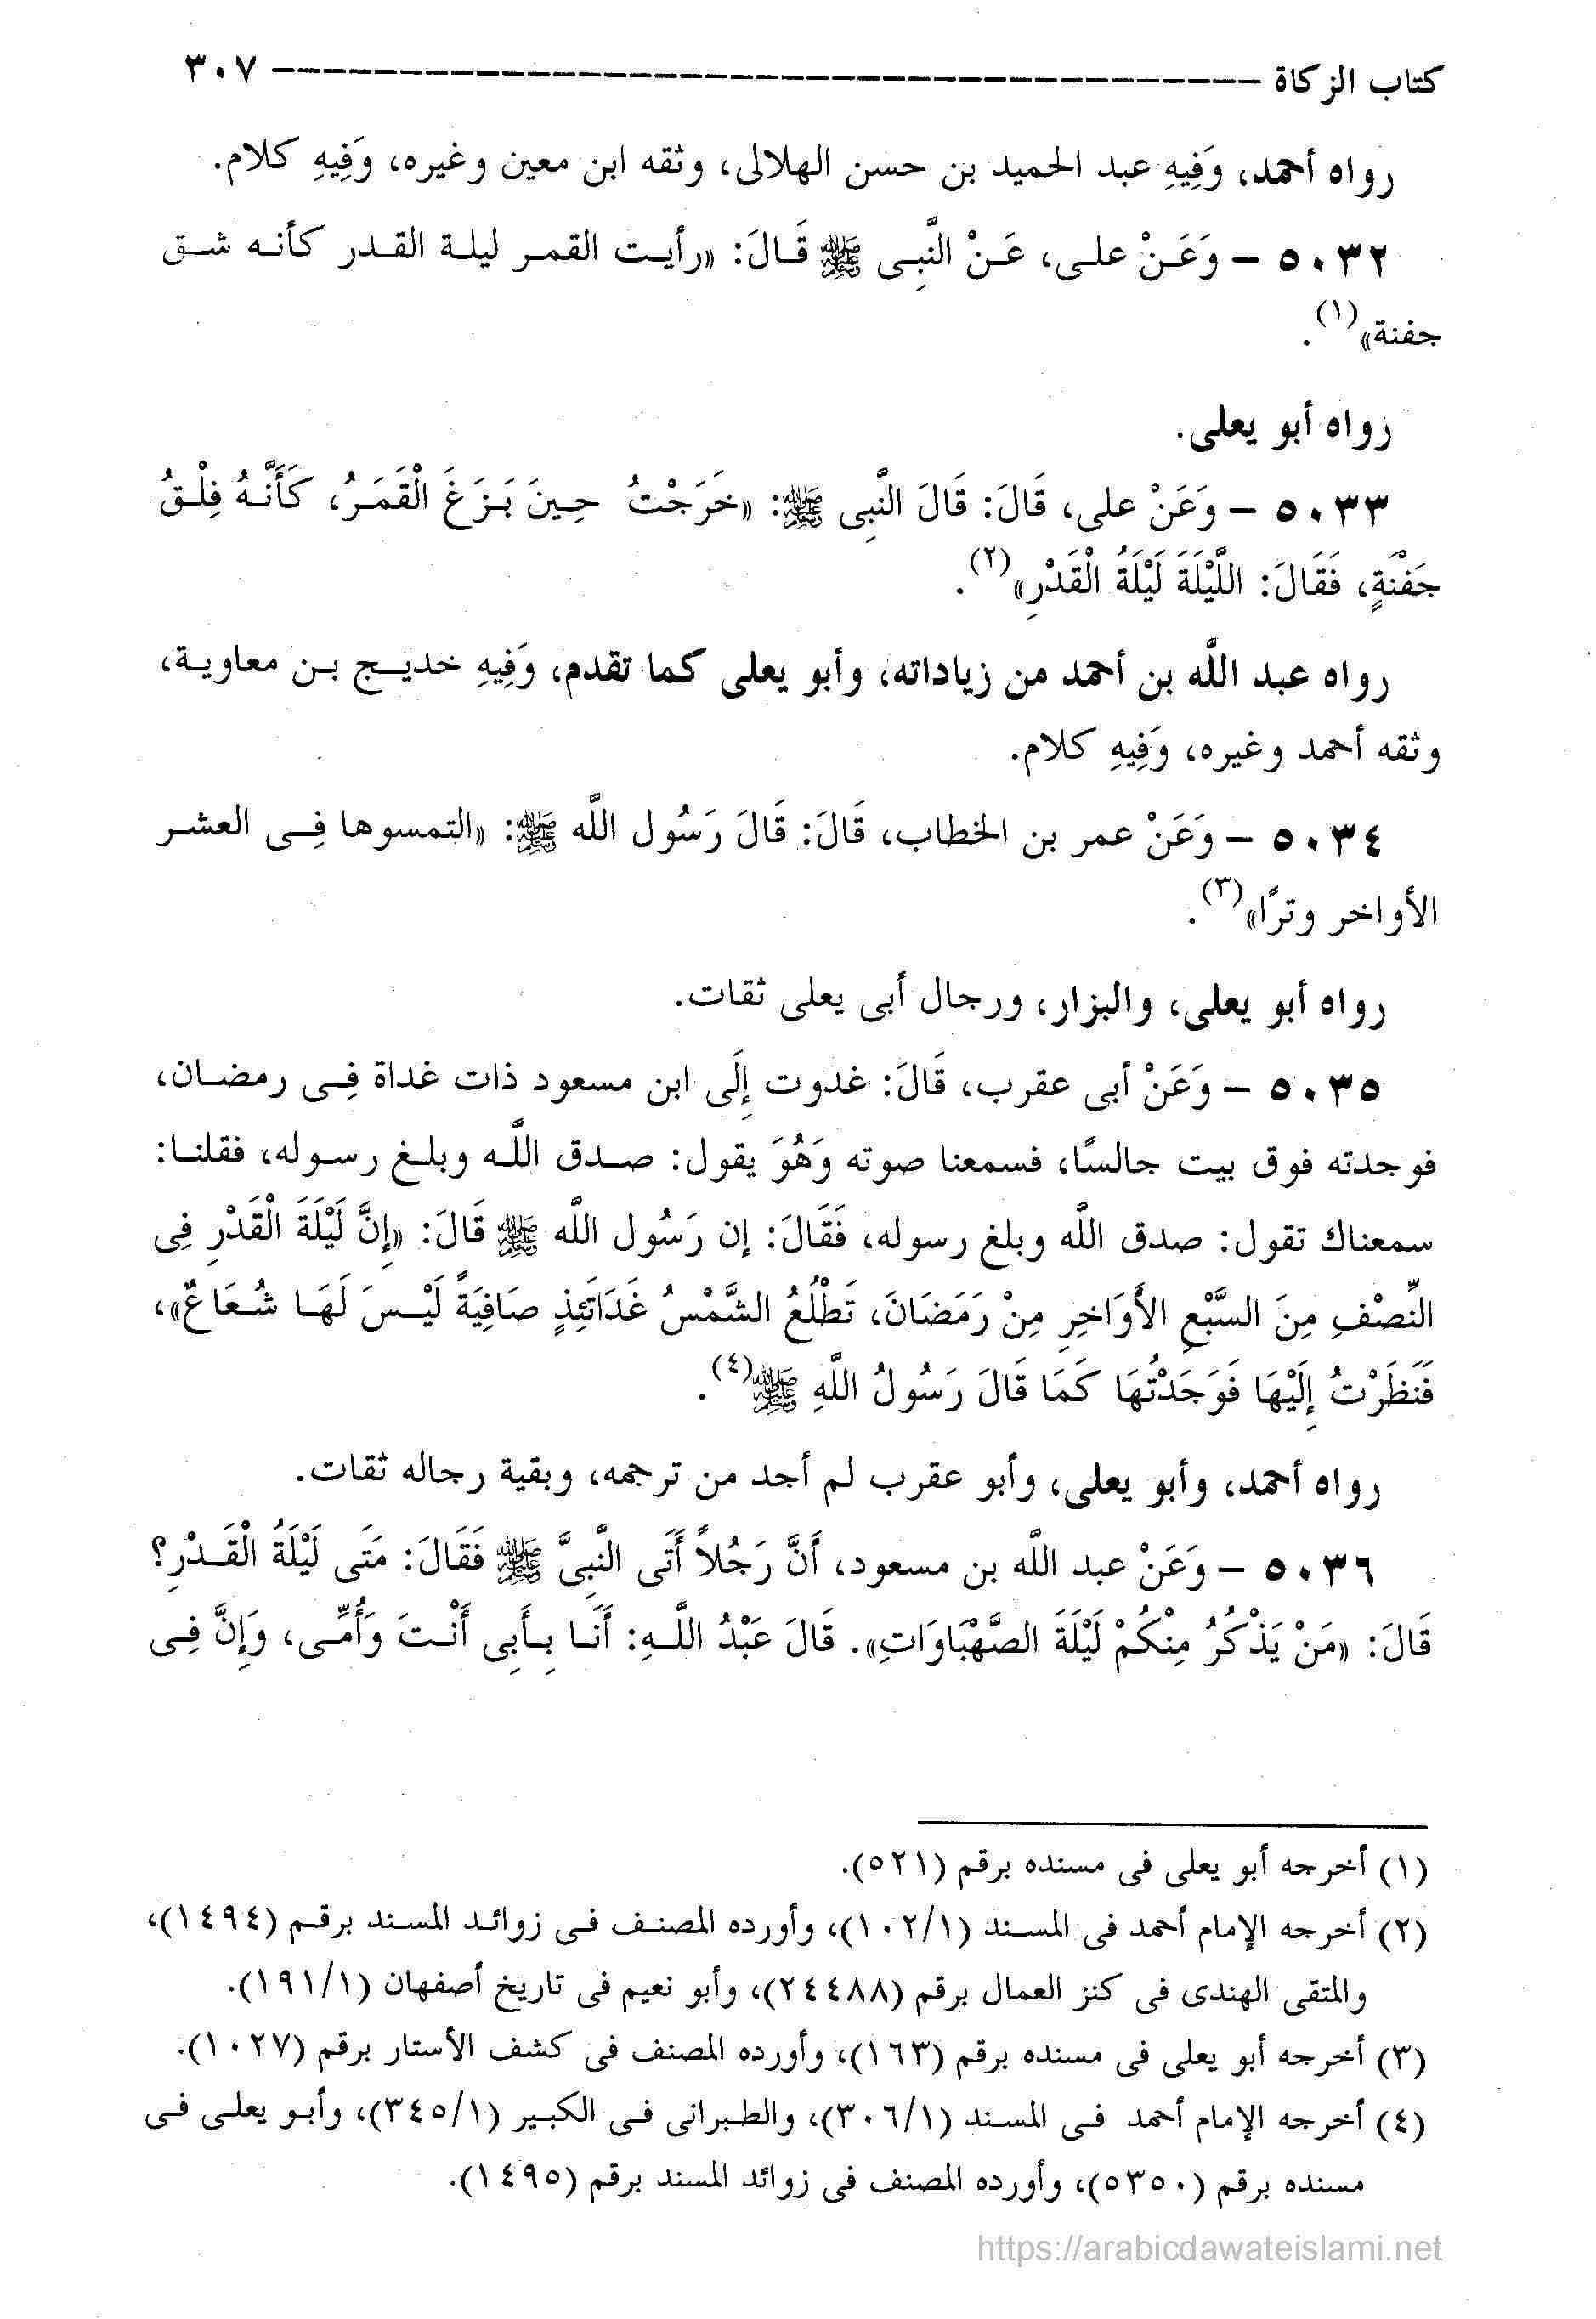 كتاب الزكاة ------------------------------------------ ٣٠٧
رواه أحمد، وَفِيهِ عبد الحميد بن حسن الهلالى، وثقه ابن معين وغيره، وَفِيهِ كلام.
٥٠٣٢ – وَعَنْ على، عَنْ النَّبِى ﷺ قَالَ: «رأيت القمر ليلة القدر كأنه شق
جفنة»(١).
رواه أبو يعلى.
٥٠٣٣ – وَعَنْ على، قَالَ: قَالَ النَّبِى ﷺ: «خَرَجْتُ حِينَ بَزَغَ الْقَمَرُ، كَأَنَّهُ فِلْقُ
جَفْنَةٍ، فَقَالَ: اللَّيْلَةَ لَيْلَةُ الْقَدْرِ»(٢).
رواه عبد اللَّه بن أحمد من زياداته، وأبو يعلى كما تقدم، وَفِيهِ خديج بن معاوية،
وثقه أحمد وغيره، وَفِيهِ كلام.
٥٠٣٤ – وَعَنْ عمر بن الخطاب، قَالَ: قَالَ رَسُول اللَّه ﷺ: «التمسوها فِى العشر
الأواخر وترًا»(٣).
رواه أبو يعلى، والبزار، ورجال أبى يعلى ثقات.
٥٠٣٥ – وَعَنْ أبى عقرب، قَالَ: غدوت إِلَى ابن مسعود ذات غداة فِى رمضان،
فوجدته فوق بيت جالسًا، فسمعنا صوته وَهُوَ يقول: صدق اللَّه وبلغ رسوله، فقلنا:
سمعناك تقول: صدق اللَّه وبلغ رسوله، فَقَالَ: إن رَسُول اللَّه ﷺ قَالَ: «إِنَّ لَيْلَةَ الْقَدْرِ فِى
النِّصْفِ مِنَ السَّبْعِ الأَوَاخِرِ مِنْ رَمَضَانَ، تَطْلُعُ الشَّمْسُ غَدَاتَئِذٍ صَافِيَةً لَيْسَ لَهَا شُعَاعٌ»،
فَنَظَرْتُ إِلَيْهَا فَوَجَدْتُهَا كَمَا قَالَ رَسُولُ اللَّهِ ﷺ(٤).
رواه أحمد، وأبو يعلى، وأبو عقرب لم أجد من ترجمه، وبقية رجاله ثقات.
٥٠٣٦ – وَعَنْ عبد اللَّه بن مسعود، أَنَّ رَجُلاً أَتَى النَّبِىَّ ﷺ فَقَالَ: مَتَى لَيْلَةُ الْقَدْرِ؟
قَالَ: «مَنْ يَذْكُرُ مِنْكُمْ لَيْلَةَ الصَّهْبَاوَاتِ». قَالَ عَبْدُ اللَّهِ: أَنَا بِأَبِى أَنْتَ وَأُمِّى، وَإِنَّ فِى
(١) أخرجه أبو يعلى فى مسنده برقم (٥٢١).
(٢) أخرجه الإمام أحمد فى المسند (١٠٢/١)، وأورده المصنف فى زوائد المسند برقم (١٤٩٤)،
والمتقى الهندى فى كنز العمال برقم (٢٤٤٨٨)، وأبو نعيم فى تاريخ أصفهان (١٩١/١).
(٣) أخرجه أبو يعلى فى مسنده برقم (١٦٣)، وأورده المصنف فى كشف الأستار برقم (١٠٢٧).
(٤) أخرجه الإمام أحمد فى المسند (٣٠٦/١)، والطبرانى فى الكبير (٣٤٥/١)، وأبو يعلى فى
مسنده برقم (٥٣٥٠)، وأورده المصنف فى زوائد المسند برقم (١٤٩٥).
https://arabicdawateislami.net